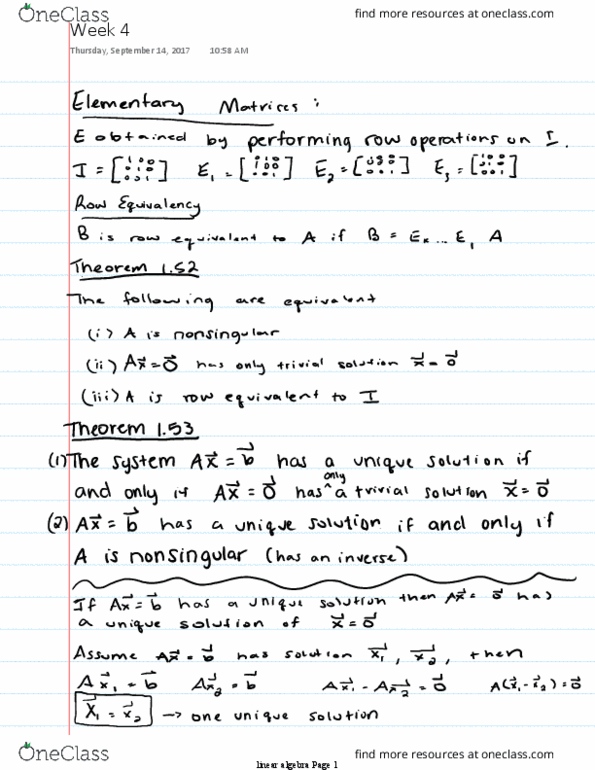 OneClass find more resources at oneclass.com
Week 4
Thursday, September 14, 2017 10:58 AM
Elementary Matrices :
E obtained by performing row operations on I.
I = [ ] E₁ = [ ] E₂ = [ ] E₃ = [ ]
Row Equivalency
B is row equivalent to A if B = Eₖ... E₁ A
Theorem 1.52
The following are equivalent
(i) A is nonsingular
(ii) Ax⃗ = 0⃗ has only trivial solution x⃗ = 0⃗
(iii) A is row equivalent to I
Theorem 1.53
(1) The system Ax⃗ = b⃗ has a unique solution if
and only if Ax⃗ = 0⃗ has ^only a trivial solution x⃗ = 0⃗
(2) Ax⃗ = b⃗ has a unique solution if and only if
A is nonsingular (has an inverse)
If Ax⃗ = b⃗ has a unique solution then Ax⃗ = 0⃗ has
a unique solution of x⃗ = 0⃗
Assume Ax⃗ = b⃗ has solution x⃗₁, x⃗₂, then
Ax⃗₁ = b⃗ Ax⃗₂ = b⃗ Ax⃗₁ - Ax⃗₂ = 0⃗ A(x⃗₁ - x⃗₂) = 0⃗
x⃗₁ = x⃗₂ → one unique solution
linear algebra Page 1
OneClass find more resources at oneclass.com